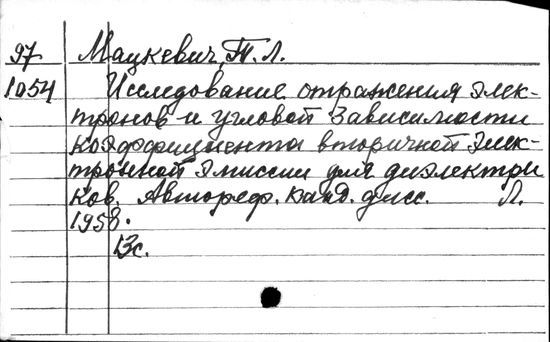 97 Мацкевич, Т. Л.
1054 Исследование отражения элек-
тронов и угловой зависимости
коэффициента вторичной элек-
тронной эмиссии для диэлектри
ков. Автореф. канд. дисс. Л.
1958.
13с.